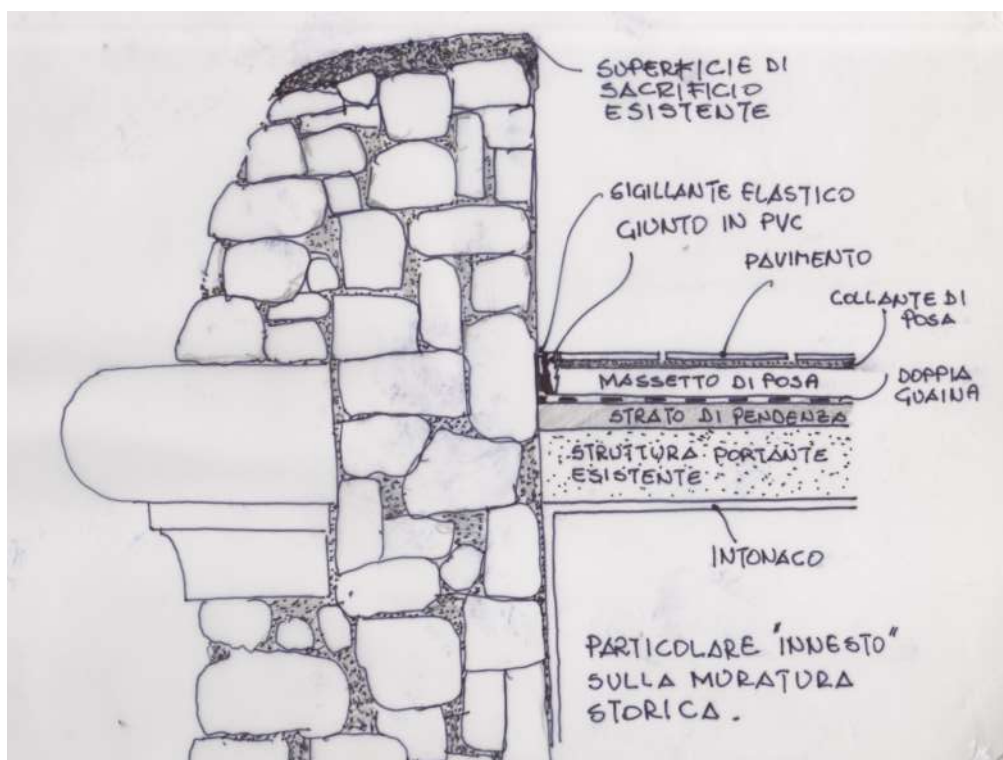 SUPERFICIE DI
SACRIFICIO
ESISTENTE
SIGILLANTE ELASTICO
GIUNTO IN PVC
PAVIMENTO
COLLANTE DI
POSA
MASSETTO DI POSA
DOPPIA
GUAINA
STRATO DI PENDENZA
STRUTTURA PORTANTE
ESISTENTE
INTONACO
PARTICOLARE "INNESTO"
SULLA MURATURA
STORICA.